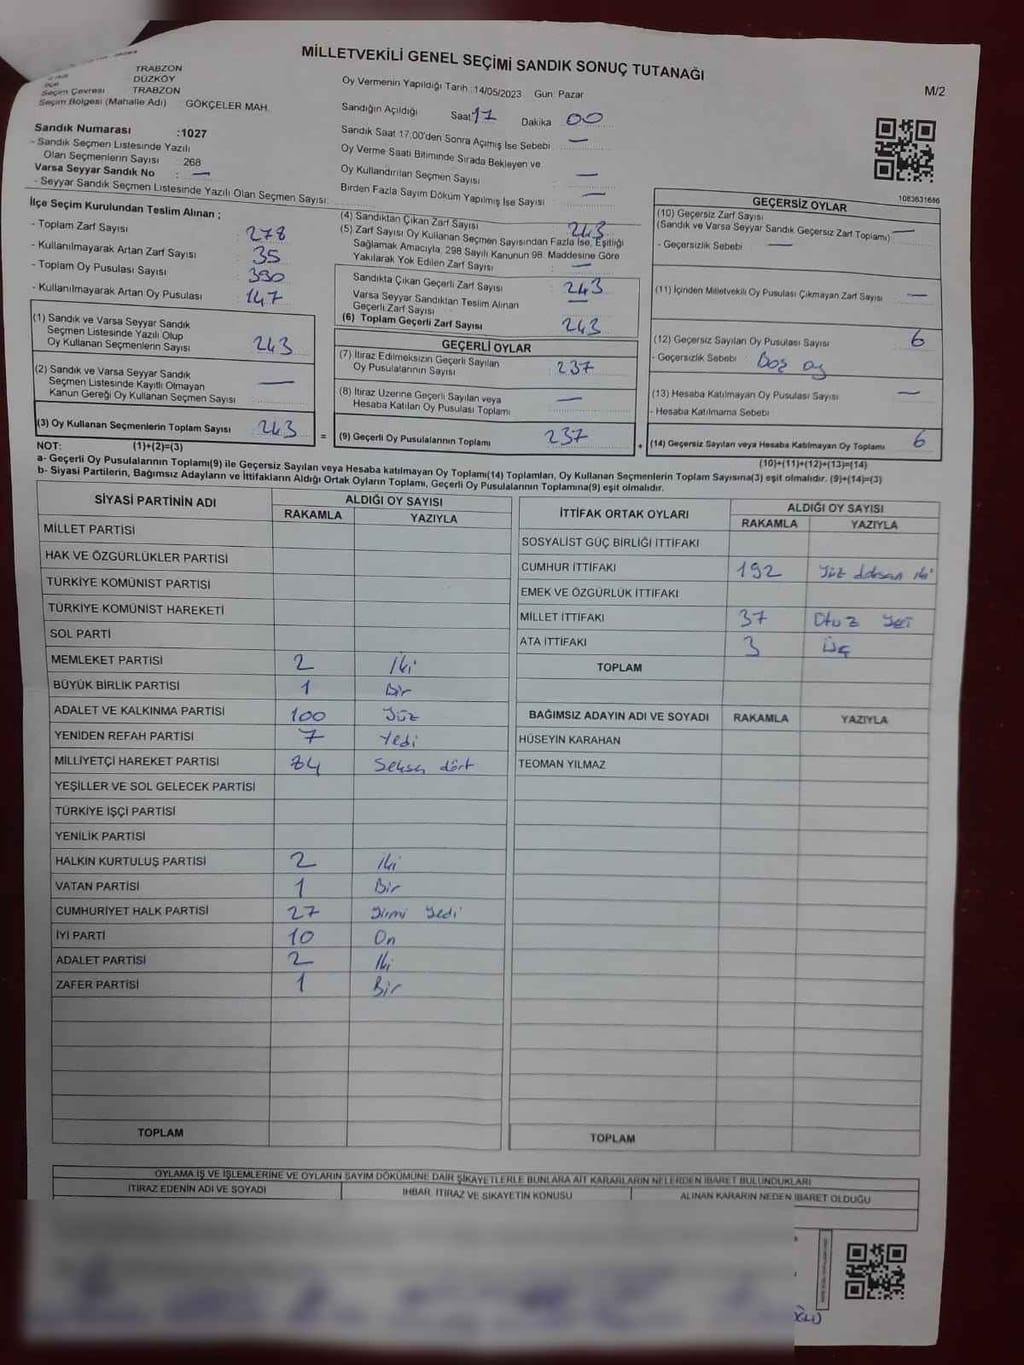 MİLLETVEKİLİ GENEL SEÇİMİ SANDIK SONUÇ TUTANAĞI
M/2
TRABZON
DÜZKÖY
Seçim Çevresi TRABZON
Seçim Bölgesi (Mahalle Adı) GÖKÇELER MAH.
Sandık Numarası :1027
- Sandık Seçmen Listesinde Yazılı
Olan Seçmenlerin Sayısı 268
Varsa Seyyar Sandık No : —
- Seyyar Sandık Seçmen Listesinde Yazılı Olan Seçmen Sayısı:
Oy Vermenin Yapıldığı Tarih :14/05/2023 Gun: Pazar
Sandığın Açıldığı Saat 17 Dakika 00
Sandık Saat 17.00'den Sonra Açımış İse Sebebi —
Oy Verme Saati Bitiminde Sırada Bekleyen ve
Oy Kullandırılan Seçmen Sayısı —
Birden Fazla Sayım Döküm Yapılmış İse Sayısı —
İlçe Seçim Kurulundan Teslim Alınan ;
- Toplam Zarf Sayısı : 278
- Kullanılmayarak Artan Zarf Sayısı : 35
- Toplam Oy Pusulası Sayısı : 390
- Kullanılmayarak Artan Oy Pusulası : 147
(1) Sandık ve Varsa Seyyar Sandık
Seçmen Listesinde Yazılı Olup
Oy Kullanan Seçmenlerin Sayısı 243
(2) Sandık ve Varsa Seyyar Sandık
Seçmen Listesinde Kayıtlı Olmayan
Kanun Gereği Oy Kullanan Seçmen Sayısı —
(3) Oy Kullanan Seçmenlerin Toplam Sayısı 243
(4) Sandıktan Çıkan Zarf Sayısı 243
(5) Zarf Sayısı Oy Kullanan Seçmen Sayısından Fazla İse, Eşitliği
Sağlamak Amacıyla, 298 Sayılı Kanunun 98. Maddesine Göre
Yakılarak Yok Edilen Zarf Sayısı : —
Sandıkta Çıkan Geçerli Zarf Sayısı : 243
Varsa Seyyar Sandıktan Teslim Alınan
Geçerli Zarf Sayısı —
(6) Toplam Geçerli Zarf Sayısı 243
GEÇERLİ OYLAR
(7) İtiraz Edilmeksizin Geçerli Sayılan
Oy Pusulalarının Sayısı : 237
(8) İtiraz Üzerine Geçerli Sayılan veya
Hesaba Katılan Oy Pusulası Toplamı —
= (9) Geçerli Oy Pusulalarının Toplamı 237
1083631686
GEÇERSİZ OYLAR
(10) Geçersiz Zarf Sayısı
(Sandık ve Varsa Seyyar Sandık Geçersiz Zarf Toplamı) —
- Geçersizlik Sebebi —
(11) İçinden Milletvekili Oy Pusulası Çıkmayan Zarf Sayısı —
(12) Geçersiz Sayılan Oy Pusulası Sayısı 6
- Geçersizlik Sebebi Boş oy
(13) Hesaba Katılmayan Oy Pusulası Sayısı —
- Hesaba Katılmama Sebebi
+ (14) Geçersiz Sayılan veya Hesaba Katılmayan Oy Toplamı 6
NOT: (1)+(2)=(3)
(10)+(11)+(12)+(13)=(14)
a- Geçerli Oy Pusulalarının Toplamı(9) ile Geçersiz Sayılan veya Hesaba katılmayan Oy Toplamı(14) Toplamları, Oy Kullanan Seçmenlerin Toplam Sayısına(3) eşit olmalıdır. (9)+(14)=(3)
b- Siyasi Partilerin, Bağımsız Adayların ve İttifakların Aldığı Ortak Oyların Toplamı, Geçerli Oy Pusulalarının Toplamına(9) eşit olmalıdır.
SİYASİ PARTİNİN ADI ALDIĞI OY SAYISI
RAKAMLA YAZIYLA
MİLLET PARTİSİ
HAK VE ÖZGÜRLÜKLER PARTİSİ
TÜRKİYE KOMÜNİST PARTİSİ
TÜRKİYE KOMÜNİST HAREKETİ
SOL PARTİ
MEMLEKET PARTİSİ 2 İki
BÜYÜK BİRLİK PARTİSİ 1 Bir
ADALET VE KALKINMA PARTİSİ 100 Yüz
YENİDEN REFAH PARTİSİ 7 Yedi
MİLLİYETÇİ HAREKET PARTİSİ 84 Seksen dört
YEŞİLLER VE SOL GELECEK PARTİSİ
TÜRKİYE İŞÇİ PARTİSİ
YENİLİK PARTİSİ
HALKIN KURTULUŞ PARTİSİ 2 İki
VATAN PARTİSİ 1 Bir
CUMHURİYET HALK PARTİSİ 27 Yirmi Yedi
İYİ PARTİ 10 On
ADALET PARTİSİ 2 İki
ZAFER PARTİSİ 1 Bir
TOPLAM
İTTİFAK ORTAK OYLARI ALDIĞI OY SAYISI
RAKAMLA YAZIYLA
SOSYALİST GÜÇ BİRLİĞİ İTTİFAKI
CUMHUR İTTİFAKI 192 Yüz doksan iki
EMEK VE ÖZGÜRLÜK İTTİFAKI
MİLLET İTTİFAKI 37 Otuz Yedi
ATA İTTİFAKI 3 Üç
TOPLAM
BAĞIMSIZ ADAYIN ADI VE SOYADI RAKAMLA YAZIYLA
HÜSEYİN KARAHAN
TEOMAN YILMAZ
TOPLAM
OYLAMA İŞ VE İŞLEMLERİNE VE OYLARIN SAYIM DÖKÜMÜNE DAİR ŞİKAYETLERLE BUNLARA AİT KARARLARIN NELERDEN İBARET BULUNDUKLARI
İTİRAZ EDENİN ADI VE SOYADI İHBAR, İTİRAZ VE ŞİKAYETİN KONUSU ALINAN KARARIN NEDEN İBARET OLDUĞU